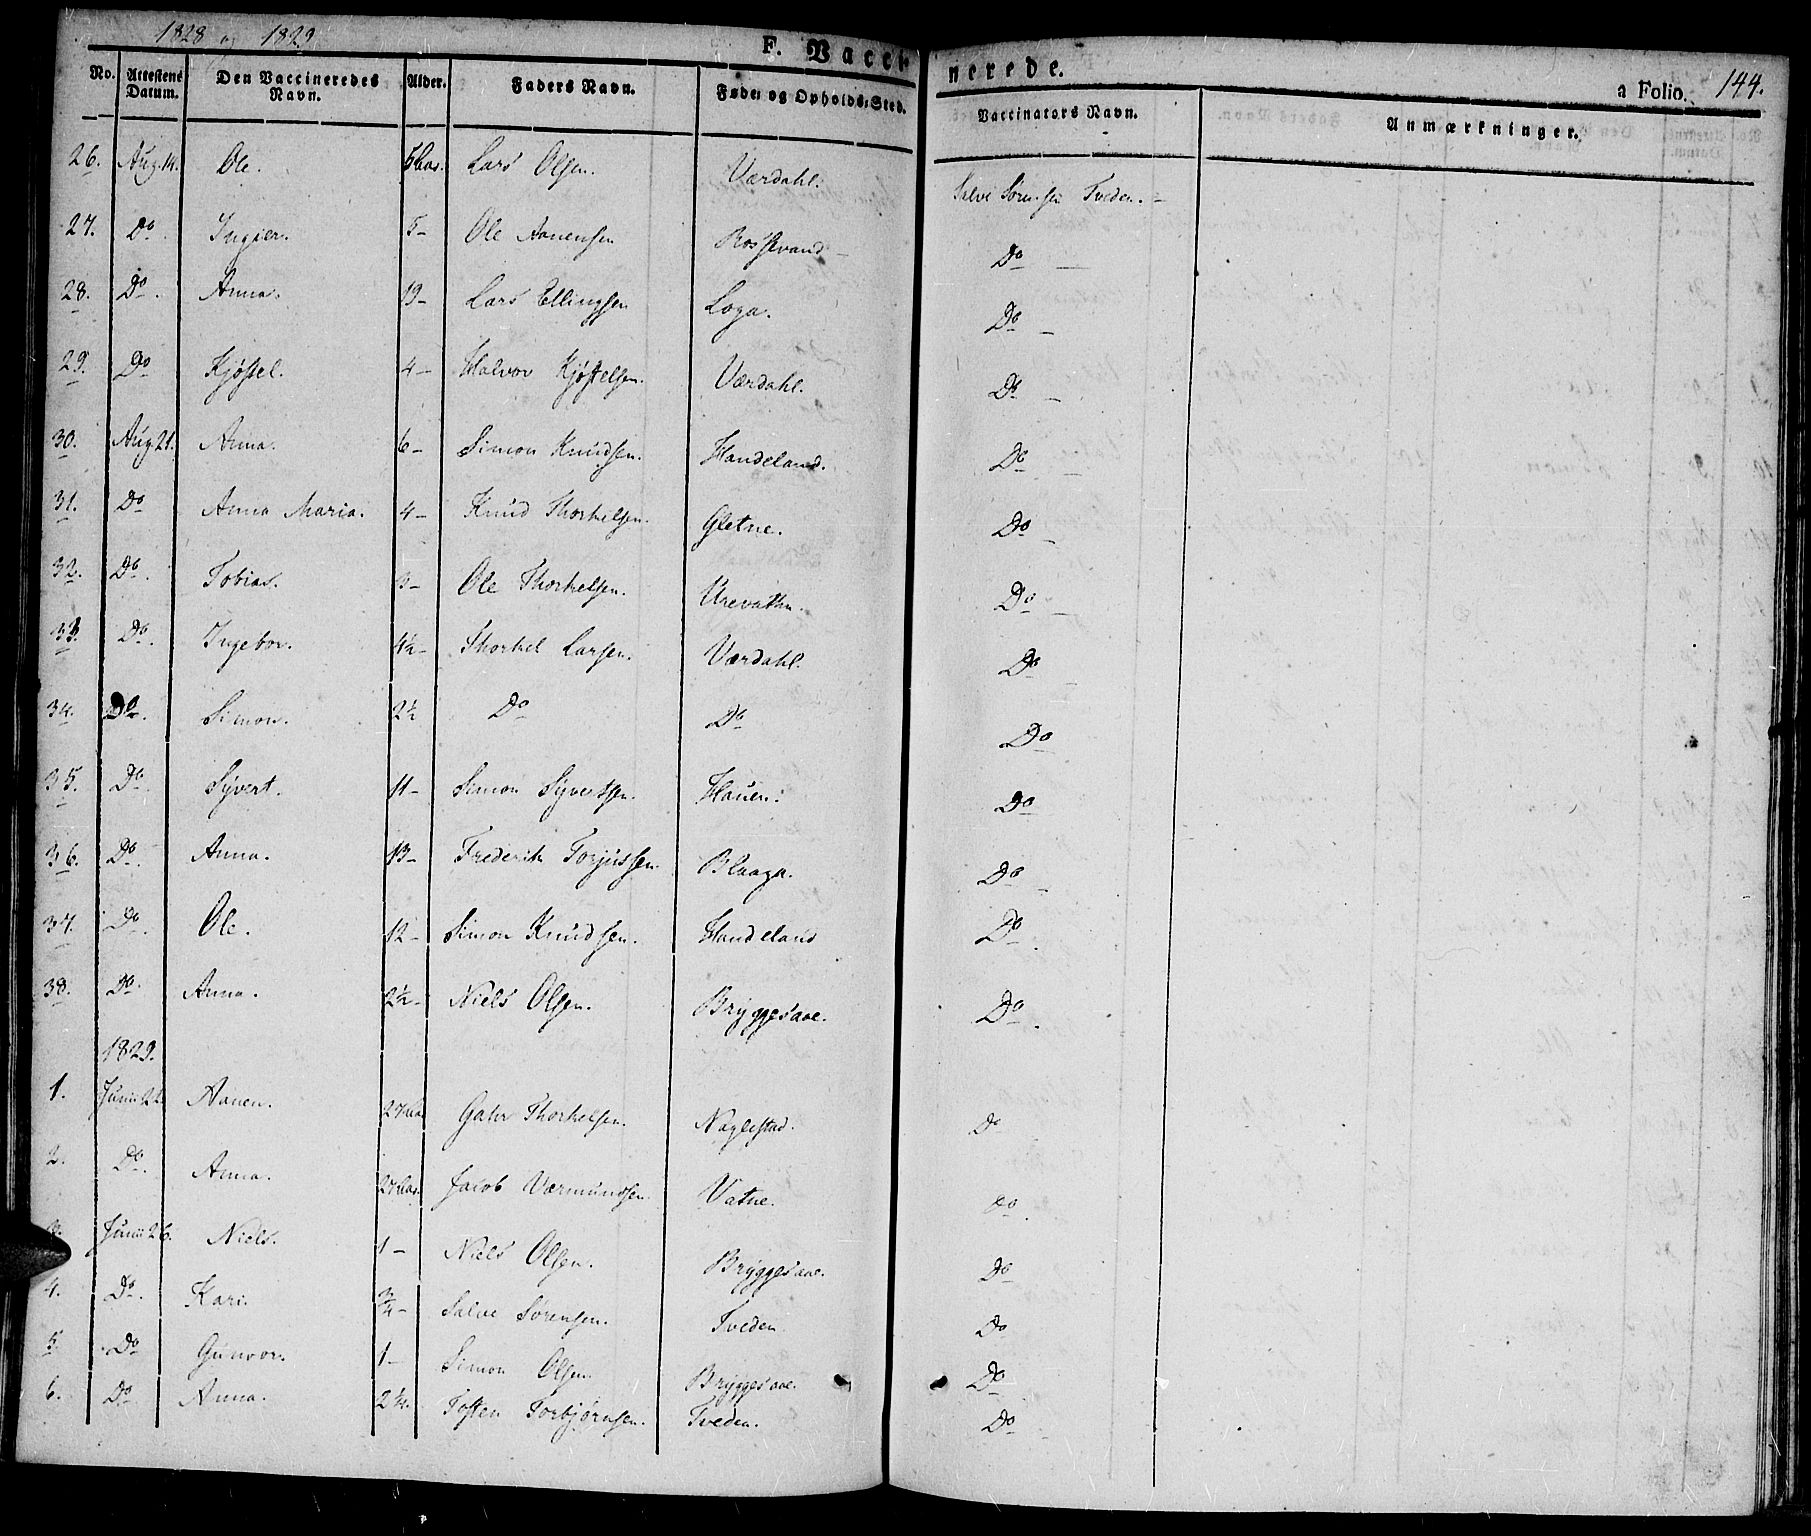 1828 og 1829
F. Vaccinerede.
a Folio. 144.
No. Attestens Datum. Den Vaccineredes Navn. Alder. Faders Navn. Føde- og Opholds-Sted. Vaccinators Navn. Anmærkninger.
26. Aug. 14. Ole. Lars Olsen. Værdahl. Salve Sørensen Tveden. -
27. Do. Ingier. 5- Ole Aanensen Rossevand - Do -
28. Do. Anna. 19- Lars Ellingsen Loga. Do -
29. Do Kjøstel. 4- Halvor Kjøstelsen. Værdahl. Do -
30. Aug 21. Anna. 6- Simon Knudsen. Handeland. Do -
31. Do Anna Maria. 4- Knud Thorkelsen. Gletne. Do -
32. Do. Tobias. 3- Ole Thorkelsen. Urevatn. Do -
33. Do. Ingebor. 4½- Thorkel Larsen. Værdahl. Do -
34. Do. Simon. 2½ Do Do Do
35. Do. Syvert. 11- Simon Syvertsen. Hauen. Do
36. Do. Anna. 13- Frederik Torjussen. Blaaga. Do -
37. Do Ole. 12- Simon Knudsen. Handeland Do.
38. Do. Anna. 2½- Niels Olsen. Bryggesaae. Do.
1829.
1. Junii 22. Aanen. Gahr Thorkelsen. Naglestad. Do
2. Do. Anna. Jacob Værmundsen. Vatne. Do.
3. Junii 26. Niels. 1- Niels Olsen. Bryggesaae. Do
4. Do. Kari. ¾- Salve Sørensen. Tveden Do
5. Do Gunvor. 1- Simon Olsen. Bryggesaae. Do
6. Do Anna. 2¼. Tosten Torbjørnsen. Tveden. Do